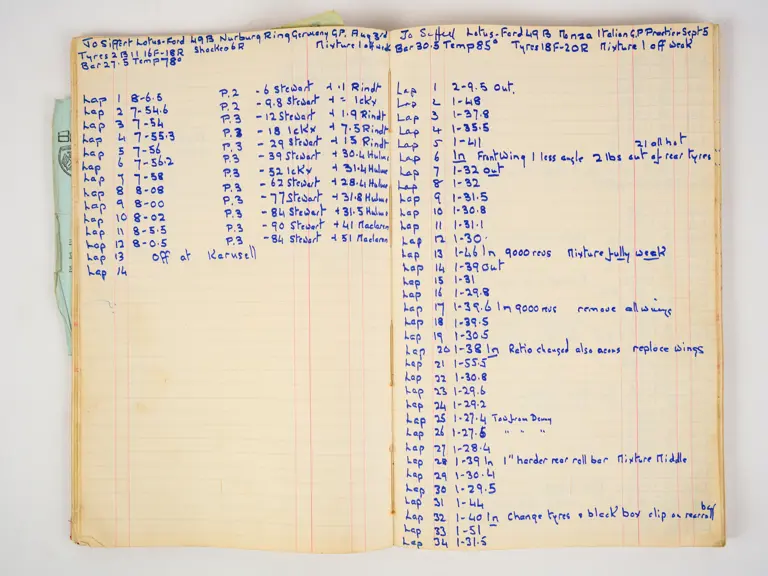 Jo Siffert Lotus-Ford 49B Nurburg Ring Germany G.P. Aug 3rd
Tyres 2B 11 16F-18R Shocked 6R Mixture 1 off weak
Bar 27.5 Temp 78°
Lap 1 8-6.5 P.2 -6 Stewart +.1 Rindt
Lap 2 7-54.6 P.2 -9.8 Stewart +- Ickx
Lap 3 7-54 P.3 -12 Stewart +1.9 Rindt
Lap 4 7-55.3 P.3 -18 Ickx +7.5 Rindt
Lap 5 7-56 P.3 -29 Stewart +15 Rindt
Lap 6 7-56.2 P.3 -39 Stewart +30.4 Hulme
Lap 7 7-58 P.3 -52 Ickx +31.4 Hulme
Lap 8 8-08 P.3 -62 Stewart +28.4 Hulme
Lap 9 8-00 P.3 -77 Stewart +31.8 Hulme
Lap 10 8-02 P.3 -84 Stewart +31.5 Hulme
Lap 11 8-5.5 P.3 -90 Stewart +41 Maclaren
Lap 12 8-0.5 P.3 -84 Stewart +51 Maclaren
Lap 13 Off at Karusell
Lap 14
Jo Siffert Lotus-Ford 49B Monza Italian G.P Practice Sept 5
Bar 30.5 Temp 85° Tyres 18F-20R Mixture 1 off weak
Lap 1 2-9.5 Out.
Lap 2 1-48
Lap 3 1-37.8
Lap 4 1-35.5
Lap 5 1-41 21 oil hot
Lap 6 In Front Wing 1 less angle 2 lbs out of rear tyres
Lap 7 1-32 out
Lap 8 1-32
Lap 9 1-31.5
Lap 10 1-30.8
Lap 11 1-31.1
Lap 12 1-30.
Lap 13 1-46 In 9000 revs Mixture fully weak
Lap 14 1-39 Out
Lap 15 1-31
Lap 16 1-29.8
Lap 17 1-39.6 In 9000 revs remove all wings
Lap 18 1-39.5
Lap 19 1-30.5
Lap 20 1-38 In Ratio changed also replace wings
Lap 21 1-55.5
Lap 22 1-30.8
Lap 23 1-29.6
Lap 24 1-29.2
Lap 25 1-27.4 Tow from Denny
Lap 26 1-27.6 " " "
Lap 27 1-28.4
Lap 28 1-39 In 1" harder rear roll bar Mixture Middle
Lap 29 1-30.4
Lap 30 1-29.5
Lap 31 1-44
Lap 32 1-40 In Change tyres & black box clip on rear roll bar
Lap 33 1-51
Lap 34 1-31.5